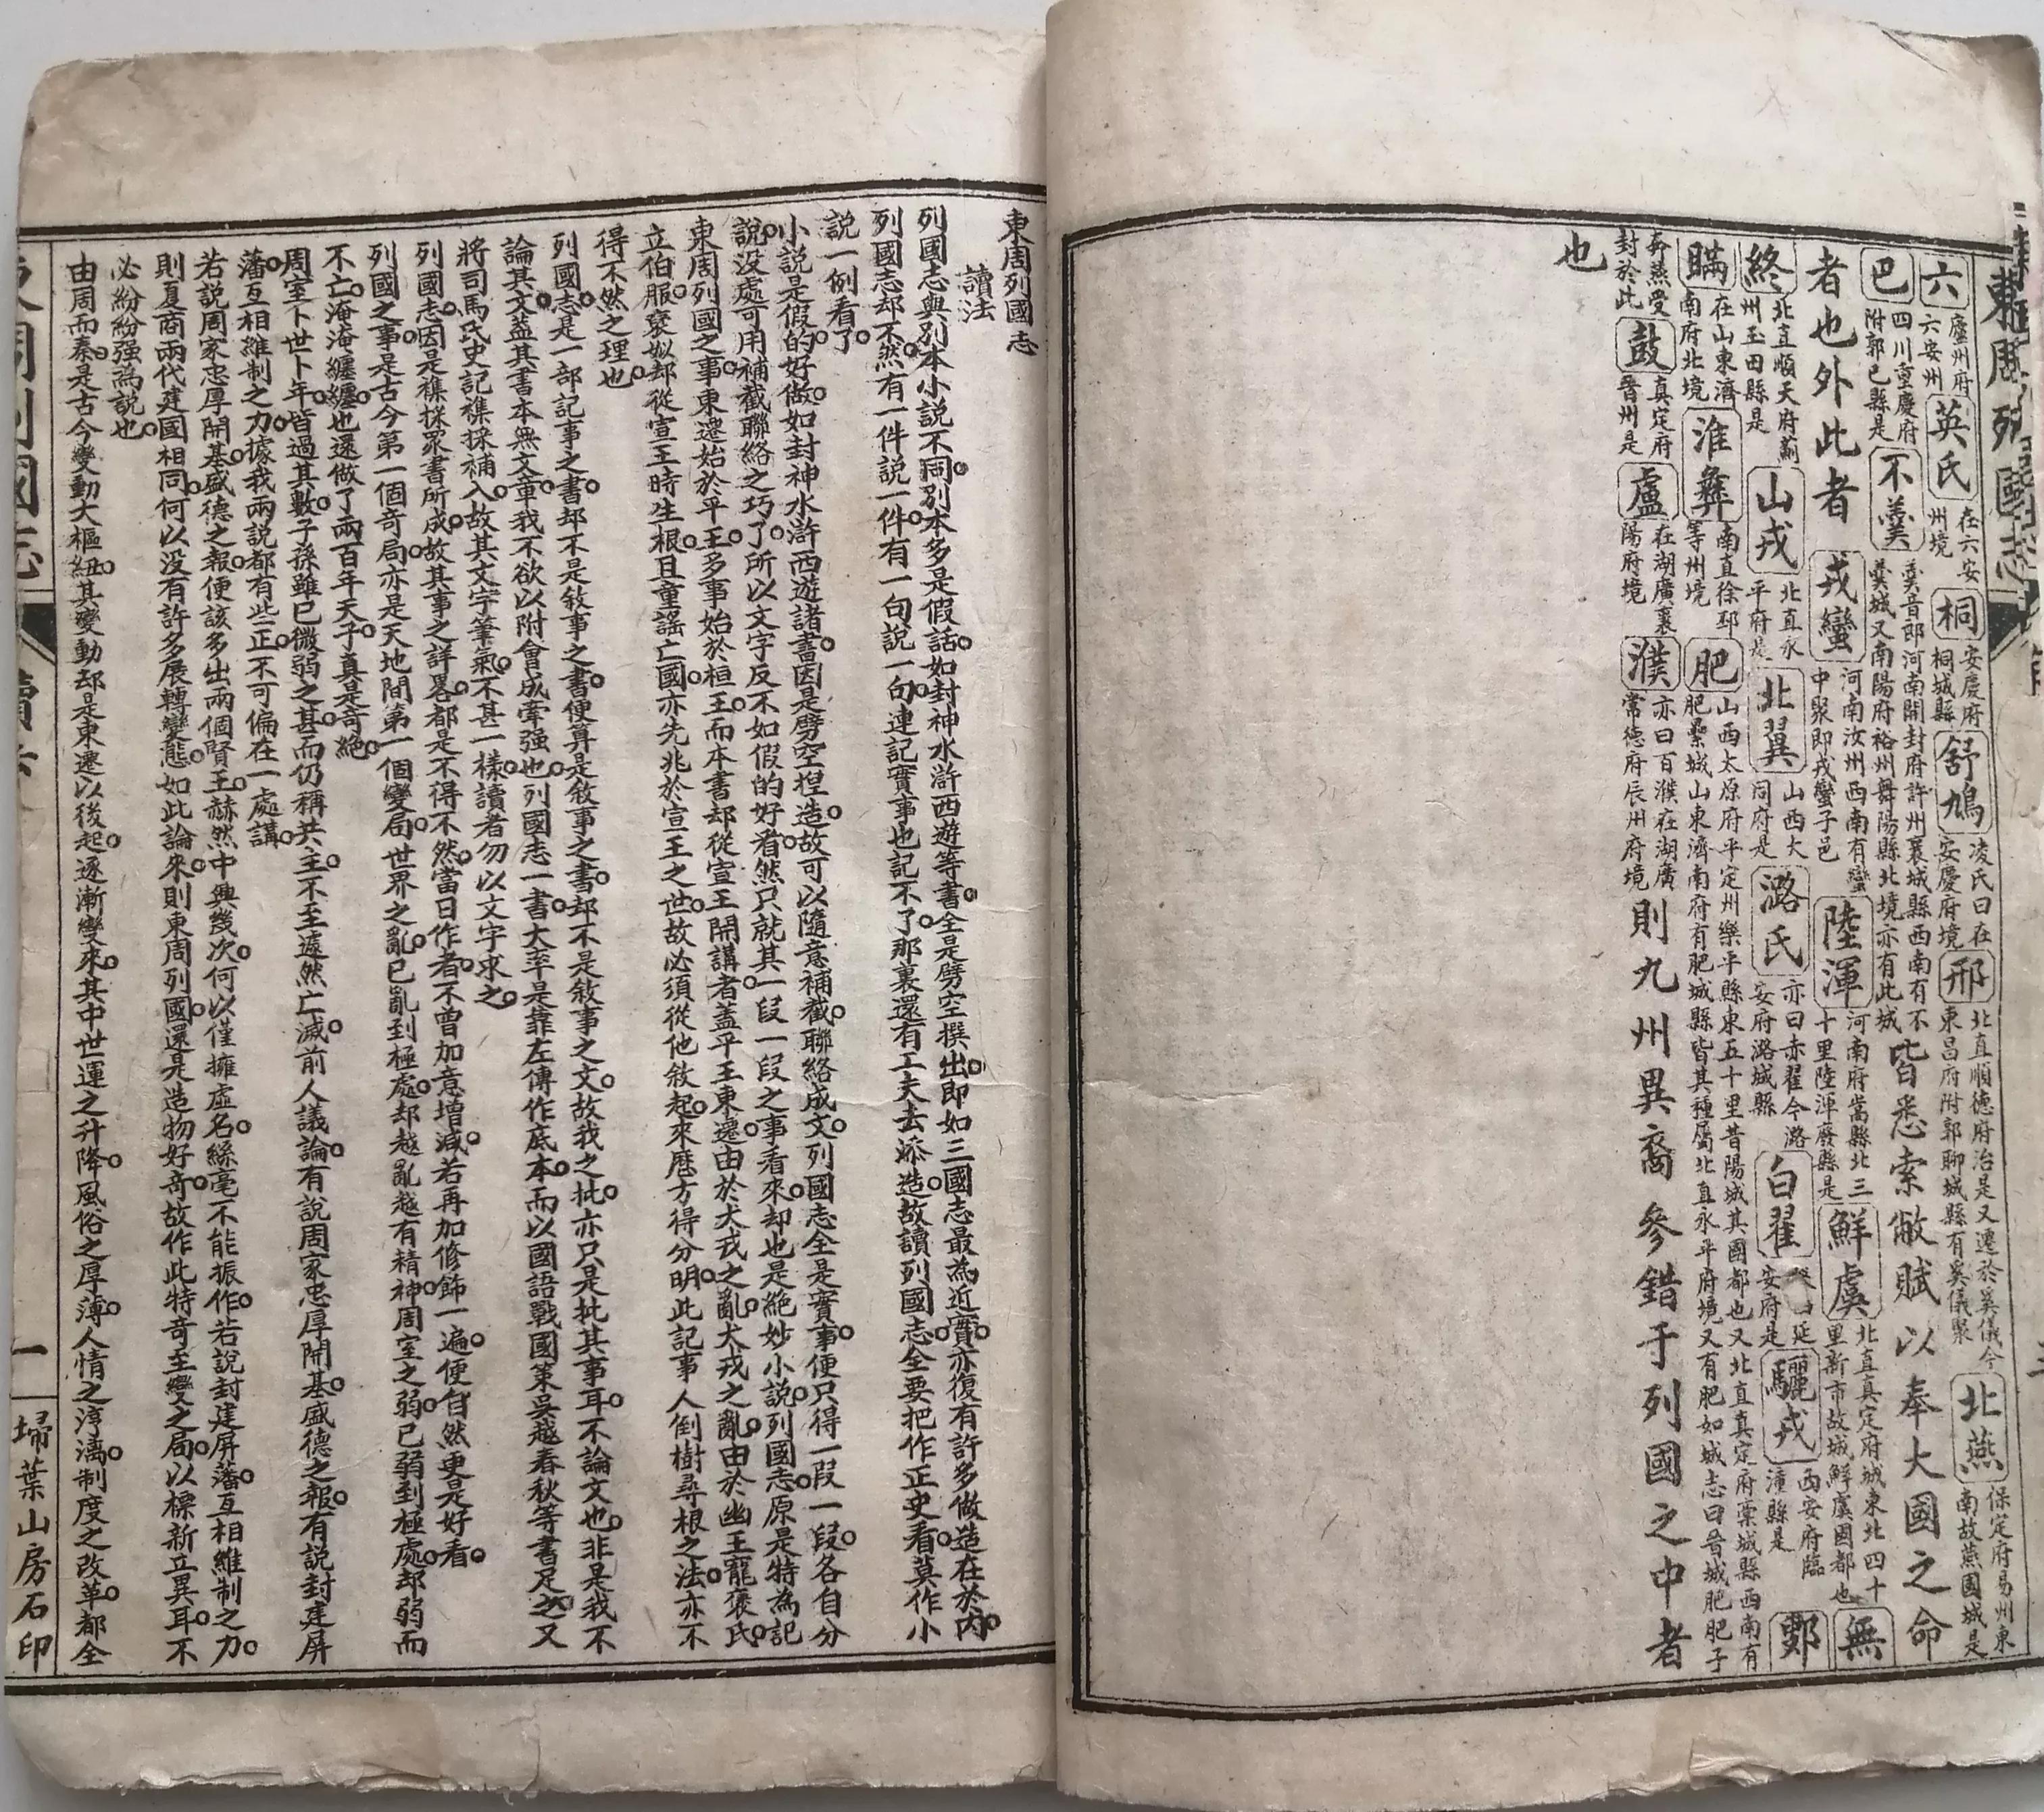 東周列國志
六廬州府六安州英氏在六安州境桐安慶府桐城縣舒鳩凌氏曰在安慶府境邢北直順德府治是又遷於夷儀今東昌府附郭聊城縣有夷儀聚北燕保定府易州東南故燕國城是
巴四川重慶府附郭巴縣是不羹羹音郎河南開封府許州襄城縣西南有不羹城又南陽府裕州舞陽縣北境亦有此城皆悉索敝賦以奉大國之命
者也外此者戎蠻河南汝州西南有蠻中聚即戎蠻子邑陸渾河南府嵩縣北三十里陸渾廢縣是鮮虞北直真定府城東北四十里新市故城鮮虞國都也無
終北直順天府薊州玉田縣是山戎北直永平府是北翼山西大同府是潞氏亦曰赤翟今潞安府潞城縣白翟延安府是驪戎西安府臨潼縣是鄋
瞞在山東濟南府北境淮彝南直徐邳等州境肥山西太原府平定州樂平縣東五十里昔陽城其國都也又北直真定府藁城縣西南有肥纍城山東濟南府有肥城縣皆其種屬北直永平府境又有肥如城志曰晉城肥肥子
奔燕受封於此鼓真定府晉州是盧在湖廣襄陽府境濮亦曰百濮在湖廣常德府辰州府境則九州異裔參錯于列國之中者
也
東周列國志
讀法
列國志與別本小說不同。別本多是假話。如封神水滸西遊等書。全是劈空撰出。即如三國志最為近實。亦復有許多做造在於內。
列國志却不然。有一件說一件。有一句說一句。連記實事也記不了。那裏還有工夫去添造。故讀列國志。全要把作正史看。莫作小
說一例看了。
小說是假的。好做。如封神水滸西遊諸書。因是劈空揑造。故可以隨意補截。聯絡成文。列國志全是實事。便只得一段一段。各自分
說。沒處可用補截聯絡之巧了。所以文字反不如假的好看。然只就其一段一段之事看來。却也是絕妙小說。列國志。原是特為記
東周列國之事。東遷始於平王。多事始於桓王。而本書却從宣王開講者。蓋平王東遷。由於犬戎之亂。犬戎之亂。由於幽王寵褒氏。
立伯服。褒姒却從宣王時生根。且童謠亡國。亦先兆於宣王之世。故必須從他敘起。來歷方得分明。此記事人倒樹尋根之法。亦不
得不然之理也。
列國志。是一部記事之書。却不是敘事之書。便算是敘事之書。却不是敘事之文。故我之批。亦只是批其事耳。不論文也。非是我不
論其文。蓋其書本無文章。我不欲以附會成牽強也。列國志一書。大率是靠左傳作底本。而以國語戰國策吳越春秋等書足之。又
將司馬氏史記襍採補入。故其文字筆氣。不甚一樣。讀者勿以文字求之。
列國志。因是襍採眾書所成。故其事之詳畧。都是不得不然。當日作者。不曾加意增減。若再加修飾一遍。便自然更是好看。
列國之事。是古今第一個奇局。亦是天地間第一個變局。世界之亂。已亂到極處。却越亂越有精神。周室之弱。已弱到極處。却弱而
不亡。淹淹纏纏。也還做了兩百年天子。真是奇絕。
周室卜世卜年。皆過其數。子孫雖已微弱之甚。而仍稱共主。不至遽然亡滅。前人議論。有說周家忠厚開基。盛德之報。有說封建屏
藩。互相維制之力。據我兩說都有些正。不可偏在一處講。
若說周家忠厚開基。盛德之報。便該多出兩個賢王。赫然中興幾次。何以僅擁虛名。絲毫不能振作。若說封建屏藩。互相維制之力。
則夏商兩代建國相同。何以沒有許多展轉變態。如此論來。則東周列國。還是造物好奇。故作此特奇至變之局。以標新立異耳。不
必紛紛强為說也。
由周而秦。是古今變動大樞紐。其變動却是東遷以後起。逐漸變來。其中世運之升降。風俗之厚薄。人情之淳漓。制度之改革。都全
讀法
一
埽葉山房石印